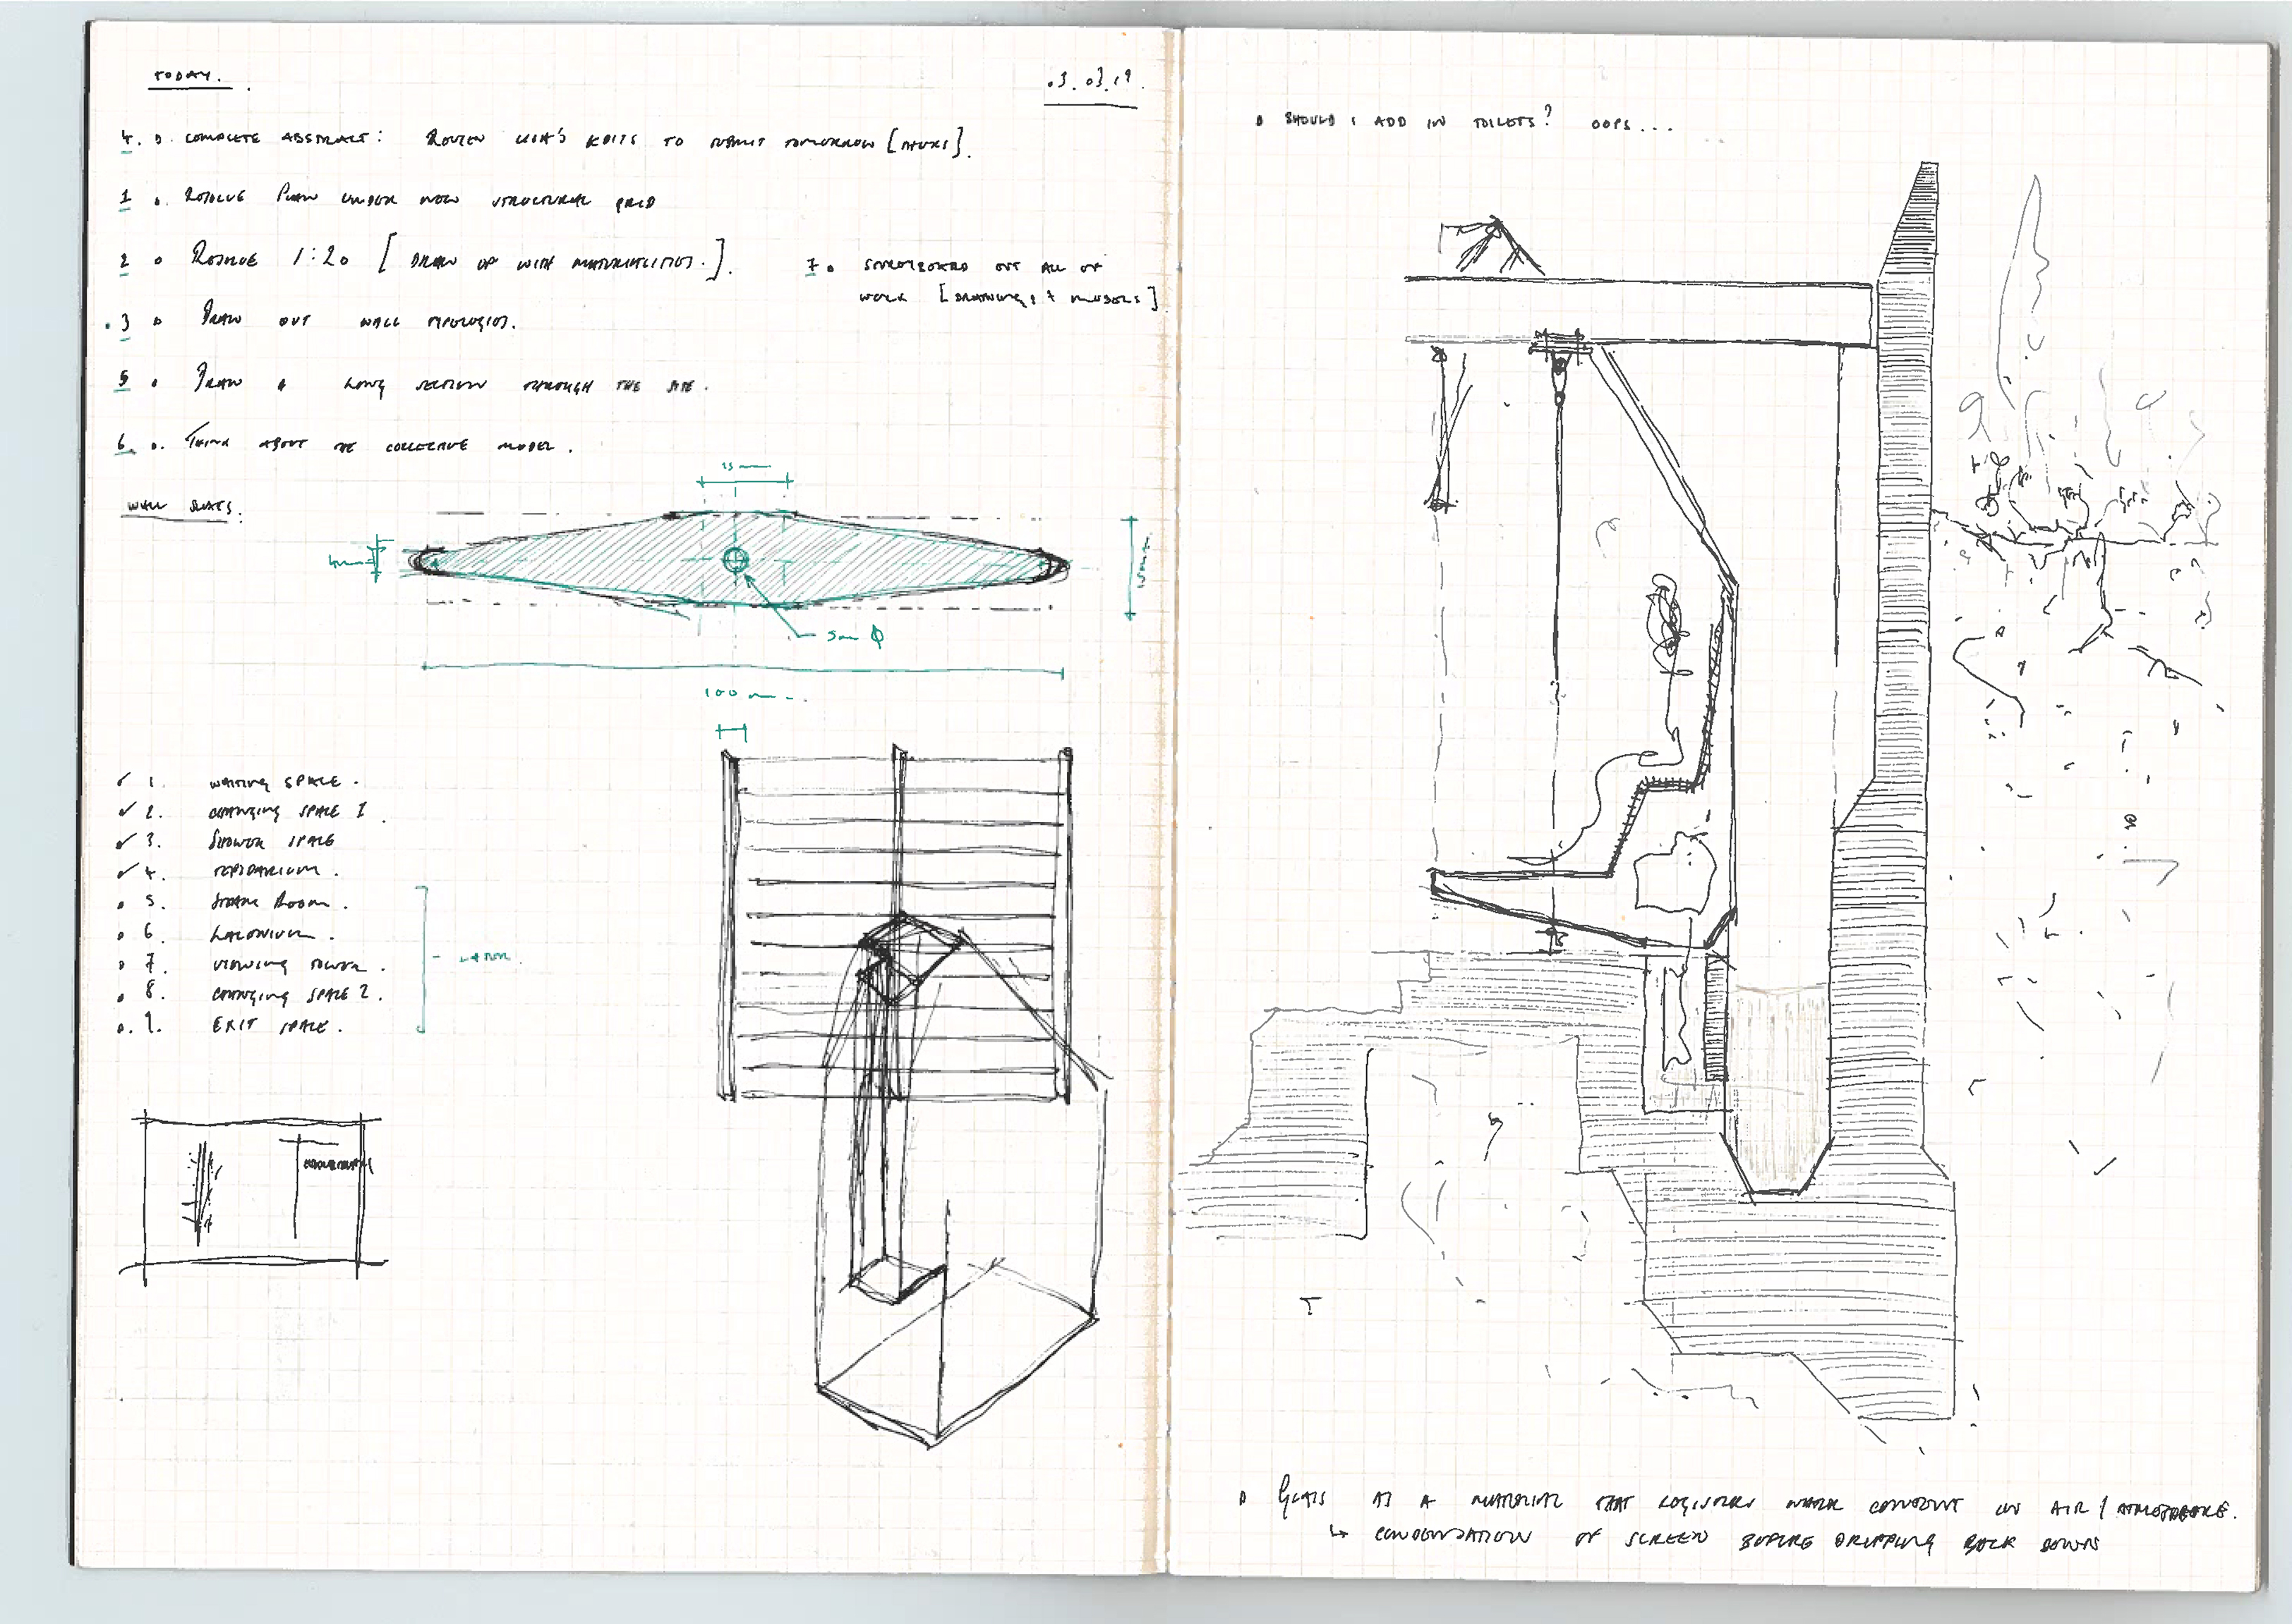 TODAY.
03.03.19.
4. COMPLETE ABSTRACT: REVIEW EDITS TO SUBMIT TOMORROW
1. RESOLVE PLAN UNDER NEW STRUCTURAL GRID
2. RESOLVE 1:20 [DRAW UP WITH MATERIALITIES.].
3. DRAW OUT WALL TYPOLOGIES.
5. DRAW A LONG SECTION THROUGH THE SITE.
6. THINK ABOUT THE COLLECTIVE MODEL.
7. STORYBOARD OUT ALL OF
WORK [DRAWINGS + MODELS]
WALL SLATS.
15mm
4mm
15mm
5mm Ø
100mm
✓ 1. WAITING SPACE.
✓ 2. CHANGING SPACE 1.
✓ 3. SHOWER SPACE
✓ 4. TEPIDARIUM.
5. STEAM ROOM.
6. LACONIUM.
7. VIEWING TOWER.
8. CHANGING SPACE 2.
9. EXIT SPACE.
SHOULD I ADD IN TOILETS? OOPS...
GLASS AS A MATERIAL THAT REGISTERS WATER CONTENT IN AIR / ATMOSPHERE.
↳ CONDENSATION OF SCREEN BEFORE DRIPPING BACK DOWN